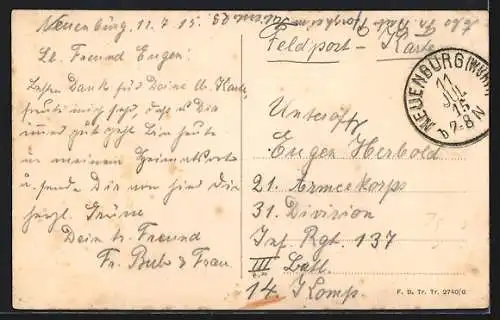 Neuenbürg, 11.7.15.
Lb. Freund Eugen!
Besten Dank für Deine lb. Karte,
freute mich sehr, daß es Dir
immer gut geht. Bin heute
in meinem Heimatsorte
u. sende Dir von hier die
herzl. Grüße
Dein tr. Freund
Fr. Bub & Frau
Feldpost - Karte
NEUENBURG (WÜRTT)
11
JUL
15
b 7-8 N
Unteroff.
Eugen Herbold
21. Armeekorps
31. Division
Inf. Rgt. 137
III Batl.
14. Komp.
F. B. Tr. Tr. 2740/0.